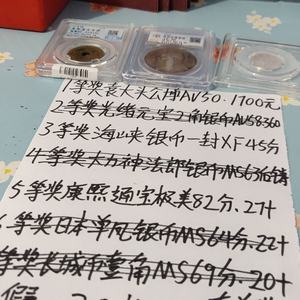 1等奖袁大头公博AU50.1700元
2等奖光绪元宝2角银币AU58 360
3等奖海山夹银币一封XF45分
4等奖大力神法郎银币MS63
5等奖康熙通宝极美82分.27+
6等奖日本单凡银币MS64分.22+
等奖长城币壹角MS69分.20+